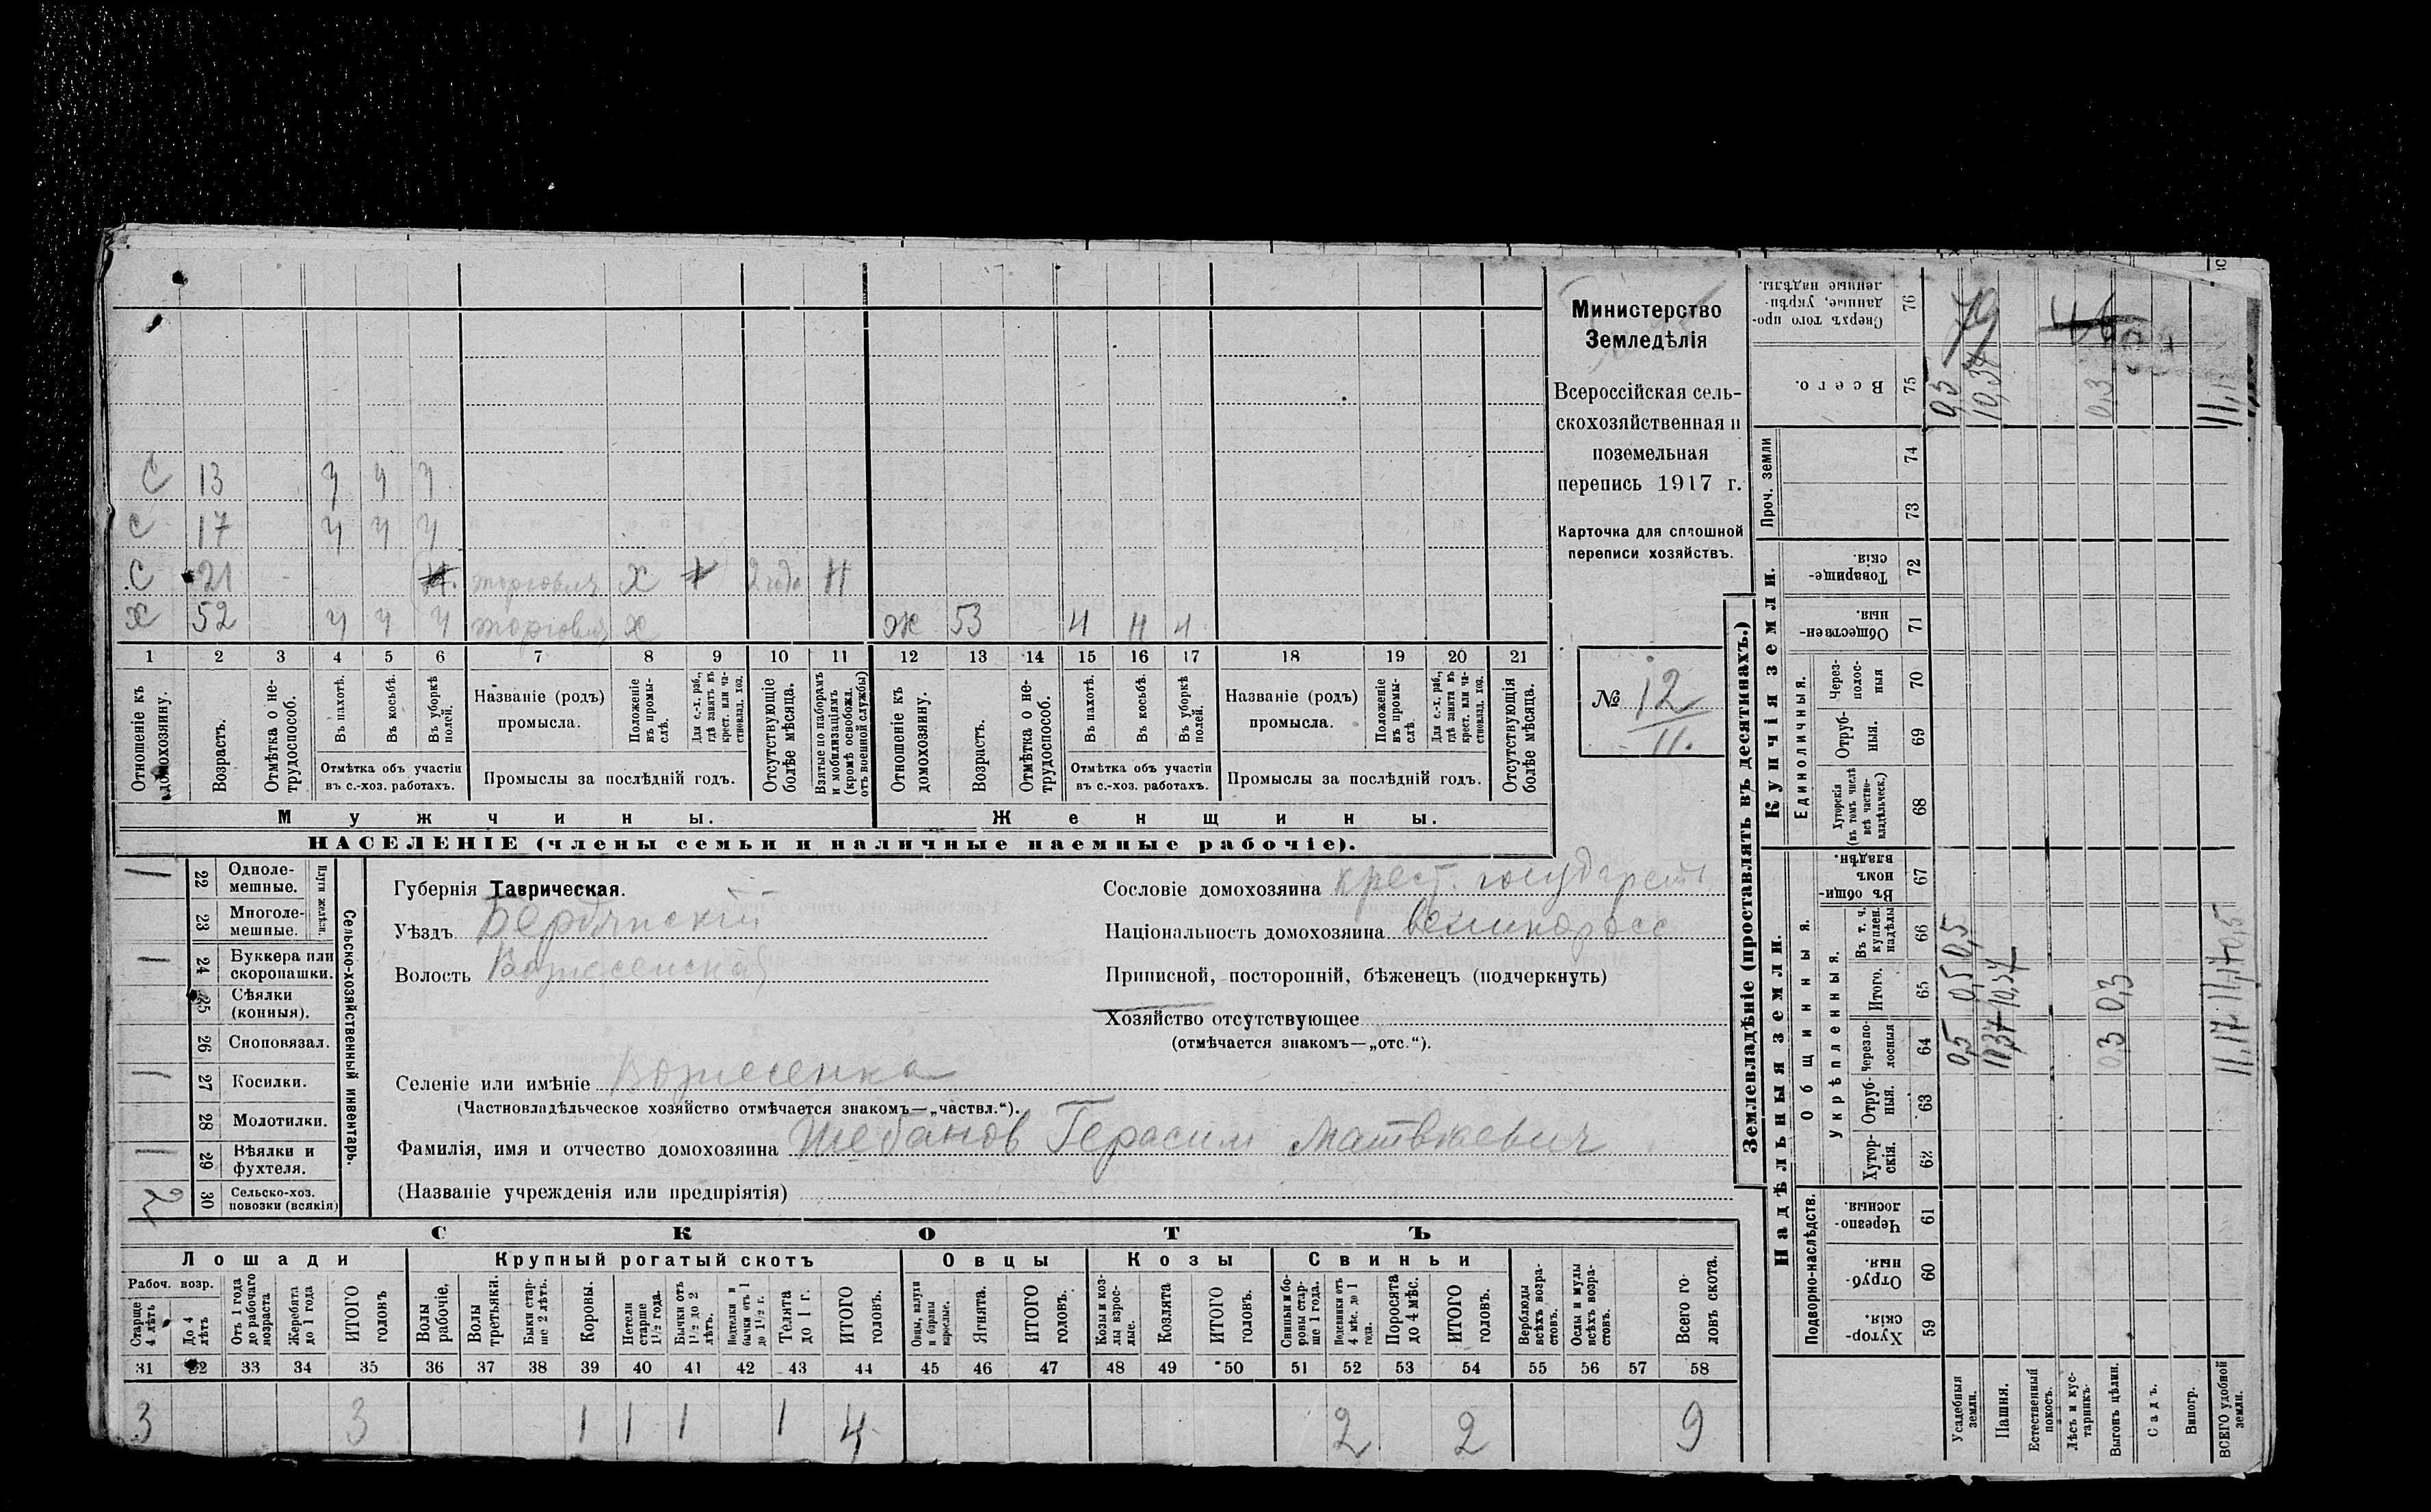 С 13 ч ч ч
С 17 ч ч ч
С 21 торговля Х 2 года Н
Х 52 ч ч ч торговля Х Ж 53 ч н ч
1 2 3 4 5 6 7 8 9 10 11 12 13 14 15 16 17 18 19 20 21
Отношеніе къ домохозяину.
Возрастъ.
Отмѣтка о нетрудоспособ.
Въ пахотѣ.
Въ косьбѣ.
Въ уборкѣ полей.
Отмѣтка объ участіи въ с.-хоз. работахъ.
Названіе (родъ) промысла.
Положеніе въ промыслѣ.
Для с.-х. раб., гдѣ занятъ въ крест. или частновлад. хоз.
Промыслы за послѣдній годъ.
Отсутствующіе болѣе мѣсяца.
Взятые по наборамъ и мобилизаціямъ (кромѣ освобожд. отъ военной службы)
Отношеніе къ домохозяину.
Возрастъ.
Отмѣтка о нетрудоспособ.
Въ пахотѣ.
Въ косьбѣ.
Въ уборкѣ полей.
Отмѣтка объ участіи въ с.-хоз. работахъ.
Названіе (родъ) промысла.
Положеніе въ промыслѣ.
Для с.-х. раб., гдѣ занята въ крест. или частновлад. хоз.
Промыслы за послѣдній годъ.
Отсутствующія болѣе мѣсяца.
Мужчины. Женщины.
НАСЕЛЕНІЕ (члены семьи и наличные наемные рабочіе).
Министерство
Земледѣлія
Всероссійская сель-
скохозяйственная и
поземельная
перепись 1917 г.
Карточка для сплошной
переписи хозяйствъ.
№ 12
II.
Сельско-хозяйственный инвентарь.
Плуги желѣзн.
1 22 Одноле-мешные.
23 Многоле-мешные.
1 24 Буккера или скоропашки.
25 Сѣялки (конныя).
26 Сноповязал.
1 27 Косилки.
28 Молотилки.
1 29 Вѣялки и фухтеля.
2 30 Сельско-хоз. повозки (всякія)
Губернія Таврическая.
Уѣздъ Бердянскій
Волость Вознесенская
Сословіе домохозяина крест. государств
Національность домохозяина великоросс
Приписной, посторонній, бѣженецъ (подчеркнуть)
Хозяйство отсутствующее
(отмѣчается знакомъ—„отс.“).
Селеніе или имѣніе Вознесенка
(Частновладѣльческое хозяйство отмѣчается знакомъ—„частвл.“).
Фамилія, имя и отчество домохозяина Шебанов Герасим Матвѣевич
(Названіе учрежденія или предпріятія)
СКОТЪ
Лошади Крупный рогатый скотъ Овцы Козы Свиньи
Рабоч. возр.
Старше 4 лѣтъ
До 4 лѣтъ
Отъ 1 года до рабочаго возраста
Жеребята до 1 года
ИТОГО головъ
Волы рабочіе.
Волы третьяки.
Быки старше 2 лѣтъ.
Коровы.
Нетели старше 1½ года.
Бычки отъ 1½ до 2 лѣтъ.
Подтелки и бычки отъ 1 до 1½ г.
Телята до 1 г.
ИТОГО головъ.
Овцы, валухи и бараны взрослые.
Ягнята.
ИТОГО головъ.
Козы и козлы взрослые.
Козлята
ИТОГО головъ.
Свиньи и боровы старше 1 года.
Подсвинки отъ 4 мѣс. до 1 года.
Поросята до 4 мѣс.
ИТОГО головъ.
Верблюды всѣхъ возрастовъ.
Ослы и мулы всѣхъ возрастовъ.
Всего головъ скота.
31 32 33 34 35 36 37 38 39 40 41 42 43 44 45 46 47 48 49 50 51 52 53 54 55 56 57 58
3 3 1 1 1 1 4 2 2 9
Землевладѣніе (проставлять въ десятинахъ.)
Купчія земли.
Проч. земли
Единоличныя.
Сверхъ того проданные, укрѣпленные надѣлы. 76 79 46
Всего. 75 0,5 10,37 0,3
74
73
Товарищескія. 72
Общественныя 71
Черезполосныя 70
Отрубныя. 69
Хуторскія (въ томъ числѣ всѣ частновладѣльческ.) 68
Надѣльныя земли.
Общинныя.
Укрѣпленныя.
Въ общинномъ владѣн. 67
Въ т. ч. куплен. надѣлы 66 0,5 0,5
Итого. 65 0,5 10,37 0,3 11,17
Черезполосныя 64 0,5 10,37 0,3 11,17
Отрубныя. 63
Хуторскія. 62
Подворно-наслѣдств.
Черезполосныя 61
Отрубныя. 60
Хуторскія. 59
Усадебныя земли.
Пашня.
Естественный покосъ.
Лѣсъ и кустарникъ.
Выгонъ цѣлин.
Садъ.
Виногр.
ВСЕГО удобной земли.